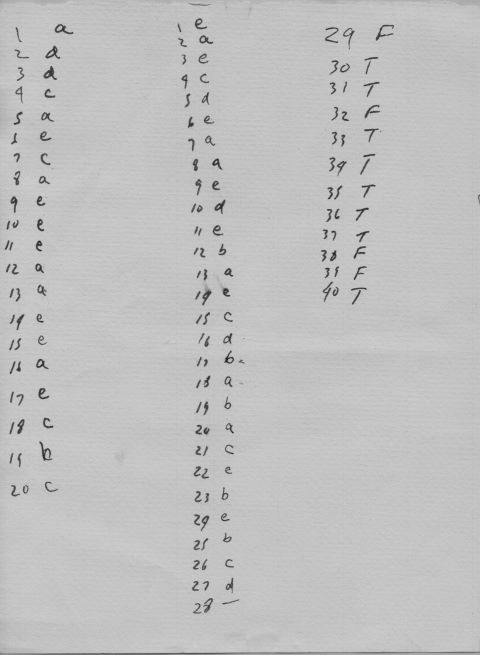 1 a
2 d
3 d
4 c
5 a
6 e
7 c
8 a
9 e
10 e
11 e
12 a
13 a
14 e
15 e
16 a
17 e
18 c
19 b
20 c
1 e
2 a
3 e
4 c
5 d
6 e
7 a
8 a
9 e
10 d
11 e
12 b
13 a
14 e
15 c
16 d
17 b
18 a
19 b
20 a
21 c
22 e
23 b
24 e
25 b
26 c
27 d
28 —
29 F
30 T
31 T
32 F
33 T
34 T
35 T
36 T
37 T
38 F
39 F
40 T